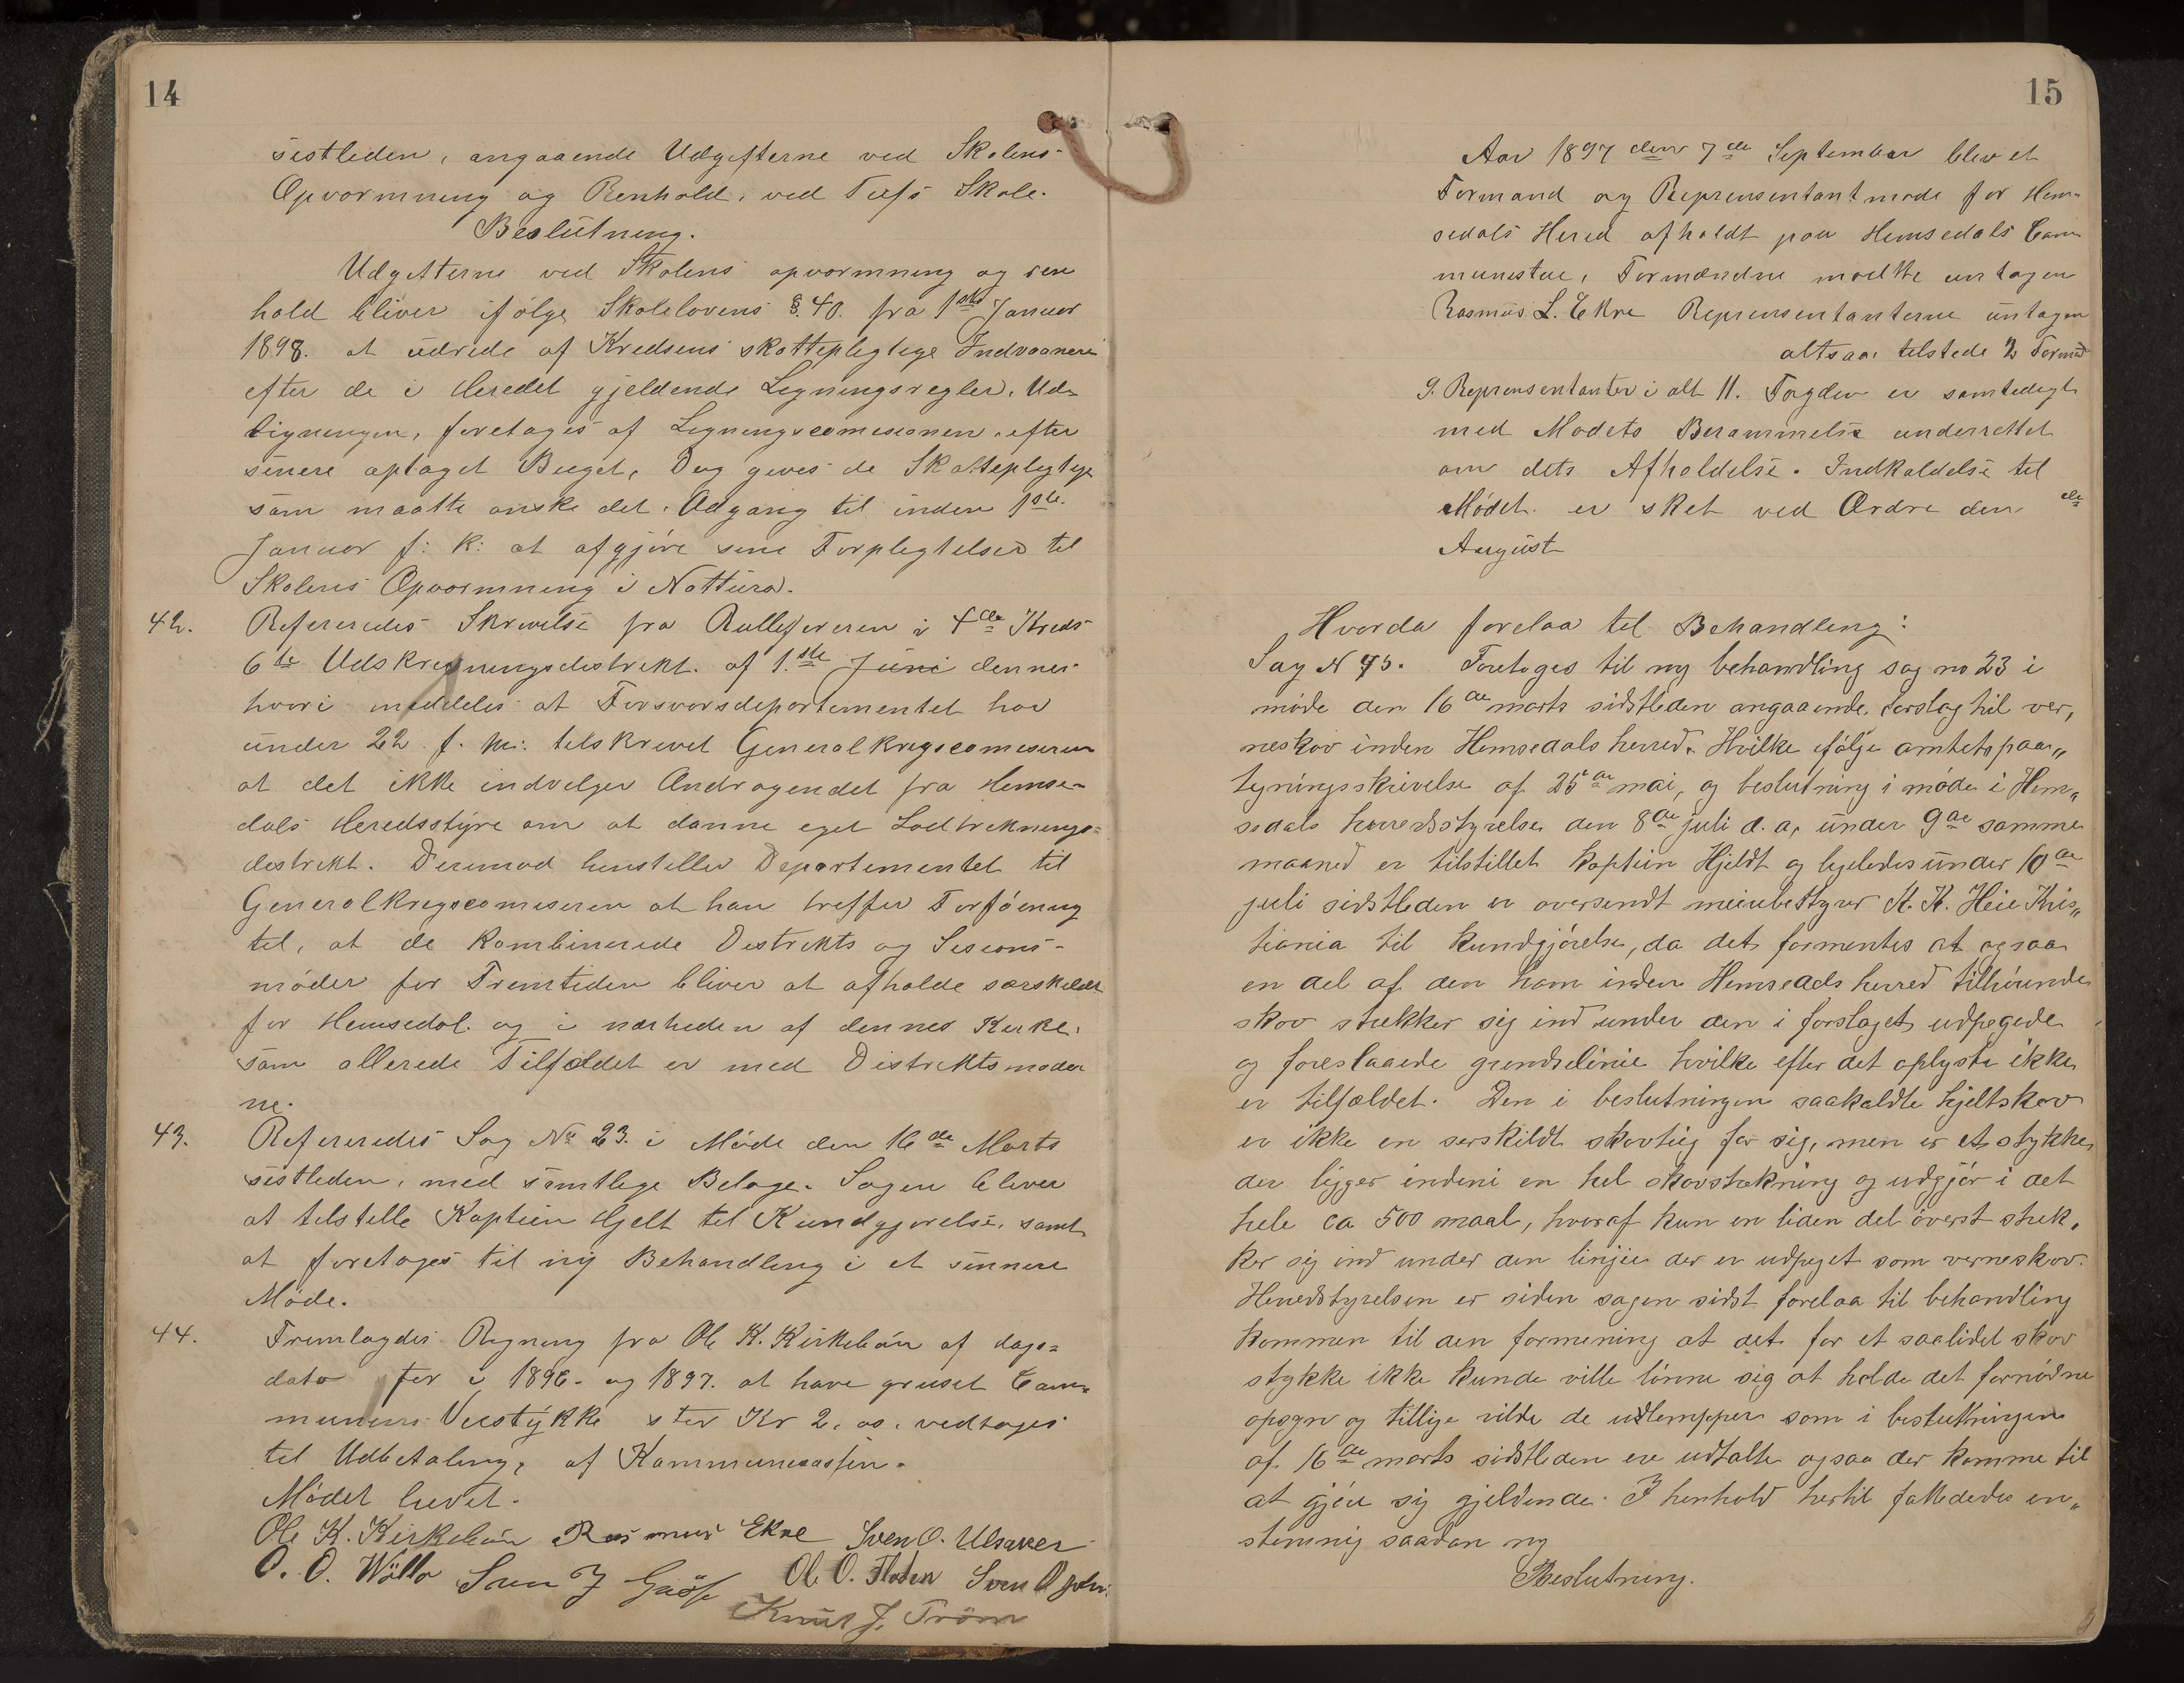 14
sestleden, angaaende Udgefterne ved Skolens
Opvormning og Renhold, ved Tufs Skole.
Beslutning.
Udgefterne ved Skolens opvormning og ren
hold bliver ifølge Skolelovens §. 40. fra 1ste Januar
1898. at udrede af Kredsens skattepligtige Indvaanere
efter de i Heredet gjeldende Legningsregler. Ud-
ligningen, foretages af Legningscomesionen efter
senere optaget Buget, Dog geves de Skattepligtige
som maatte onske det. Adgang til inden 1ste
Januar f: k: at afgjøre sine Forplegtelser til
Skolens Opvormning i Nattura.
42.
Refereredes Skrevelse fra Rulleføreren i 4de Kreds
6te Udskrevningsdestrekt. af 1.ste Juni dennes
hvori meddeles at Forsvarsdepartementet har
under 22 f. m: telskrevet Generalkregscomeseren
at det ikke indvelger Andragendet fra Hemse-
dals Heredsstyre om at danne eget Lodtreknings-
destrekt. Derimod henstelles Departementet til
Generalkregscomeseren at han treffer Forføening
tel, at de kombinerede Destrekts og Sesions-
møder for Fremtiden bliver at afholde særskeldt
for Hemsedal. og i nærheden af dennes Kerke.
som allerede Tilfældet er med Distriktsmøder
ne.
43.
Refereredes Sag No 23. i Møde den 16de Marts
sestleden, med samtlege Belage. Sagen bliver
at telstelle Kaptein Hjelt tel Kundgjørelse, samt
at foretages til ny Behandleng i et sennere
Møde.
44.
Fremlagdes Regning fra Ole K. Kirkebøn af dags-
dato for i 1896. og 1897. at have gruset Com-
munens Veistykke stor Kr 2,00. vedtoges
tel Udbetaling, af Kammunecassen.
Mødet hevet.
Ole K. Kirkebøn Rasmus Ekre Sven O. Ulsaker
O. O. Wøllo Sven J Ole O. Floten Sven O
Knut J. Trøm
15
Aar 1897 den 7de September blev et
Formand og Reprensentantmøde for Hem-
sedals Hered afholdt paa Hemsedals Com
munestue, Formændne mødte untagen
Rasmus L. Ekre Reprensentanterne untagen
altsaa telstede 2 Formd
9. Reprensentanter i alt 11. Fogden er samtedegt
med Mødets Berammelse underrettet
om dets Afholdelse. Indkaldelse til
Mødet er sket ved Ordre den de
August
Hvorda forelaa tel Behandleng:
Sag N 45. Foretoges til ny behandling sag no 23 i
møde den 16de marts sidstleden angaaende, forslag til ver,
neskov inden Hemsedals herred. Hvilke ifølge amtets paa„
tegningsskrivelse af 25de mai, og beslutning i møde i Hem„
sedals herredsstyrelse den 8de juli d. a, under 9de samme
maaned er tilstillet kaptein Hjeldt og ligeledes under 10de
juli sidstleden er oversendt meiebestyrer K. K. Heie Kris„
tiania til kundgjørelse, da det formentes at ogsaa
en del af den ham inden Hemseads herred tilhørende
skov strekker sig ind under den i forslaget udpegede
og foreslaaede grendselinie hvilke efter det oplyste ikke
er tilfældet. Den i beslutningen saakaldte hjeltskov
er ikke en serskildt skovteig for sig, men er et stykke
der ligger indeni en hel skovstrekning og udgjør i det
hele ca 500 maal, hvoraf kun en liden del øverst strek,
ker sig ind under den linjee der er udpeget som verneskov.
Herredstyrelsen er siden sagen sidst forelaa til behandling
kommen til den formening at det for et saalidet skov
stykke ikke kunde ville lønne sig at holde det fornødne
opsyn og tillige vilde de udlemper som i beslutningen
af 16de marts sidstleden ere udtalte ogsaa der komme til
at gjøre sig gjeldende. I henhold hertil fattededes en„
stemmig saadan ny
Beslutning.